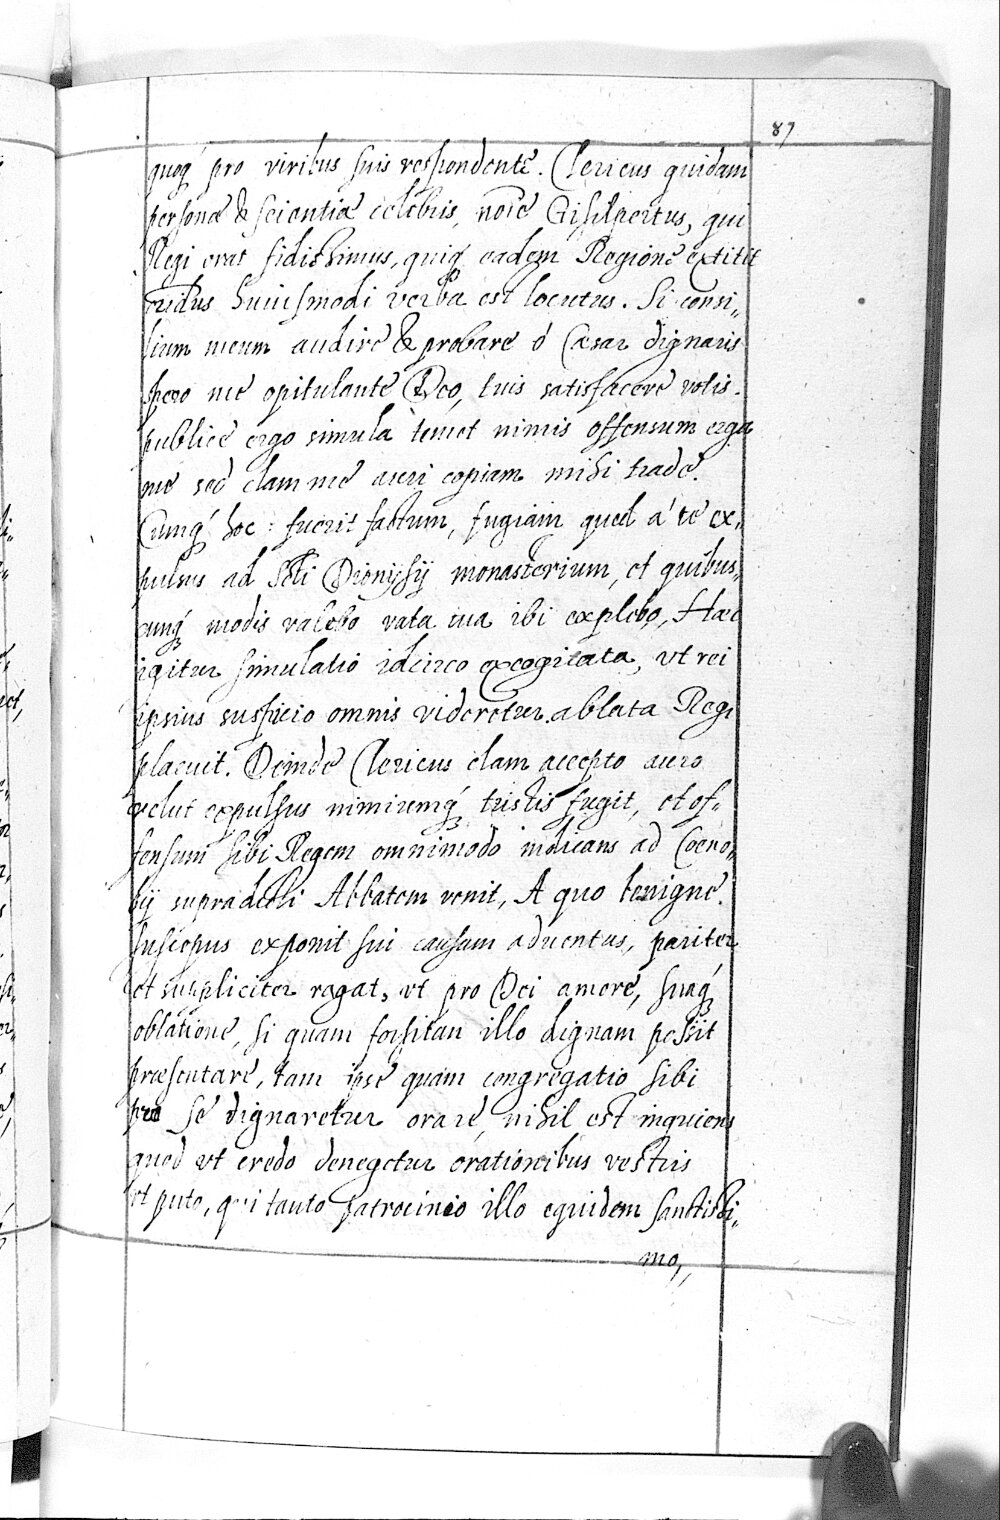 87
quoq́ pro viribus suis respondente. Clericus quidam
persona & scientia celebris, noīe Gisilpertus, qui
Regi erat fidissimus, quiq́ eadem Regione extitit
huiusmodi verba est locutus. Si consi„
lium meum audire & probare ó Cæsar dignaris
spero me opitulante Deo, tuis satisfacere votis.
publice ergo simula temet nimis offensum erga
me sed clam me auri copiam mihi trade.
Cumq́ hoc fuerit factum, fugiam quod á te ex„
pulsus ad Sčti Dionysij monasterium, et quibus„
cunq́ modis valebo vota tua ibi explebo, Hæc
igitur simulatio idcirco excogitata, vt rei
ipsius suspicio omnis videretur ablata Regi
placuit. Deinde Clericus clam accepto auro
velut expulsus nimiumq́ tristis fugit, et of„
fensum sibi Regem omnimodo indicans ad Coeno„
bij supradicti Abbatem venit, A quo benigne
susceptus exponit sui causam aduentus, pariter
et suppliciter rogat, vt pro Dei amore, suaq́
oblatione, si quam forsitan illo dignam possit
præsentare, tam ipse quam congregatio sibi
pro se dignaretur orare, nihil est inquiens
quod vt credo denegetur orationibus vestris
vt puto, qui tanto patrocinio illo equidem sanctissi„
mo,